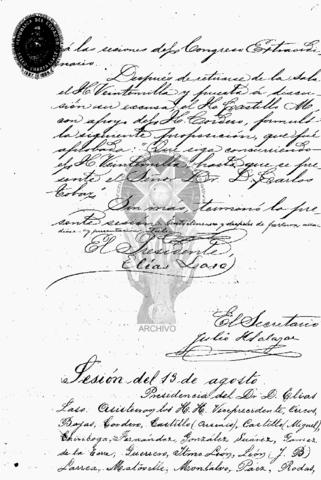 á las sesiones de este Congreso Extraordi-
nario.
Después de retirarse de la Sala
el H. Veintemilla y puesta á discu-
sión su excusa, el H. Castillo M.
con apoyo del H. Cordero, formuló
la siguiente proposición, que fué
aprobada: "Que siga concurriendo
el H. Veintemilla hasta que se pre-
sente el Señor Dr. D. Carlos
Tobar."
Sin más, terminó la pre-
sente sesión.
El Presidente,
Elías Laso
ARCHIVO
El Secretario
Julio H. Salazar
Sesión del 13 de agosto
Presidencia del Dr. D. Elías
Laso. Asistieron los H. H. Vicepresidente, Arcos,
Borja, Cordero, Castillo (Arsenio), Castillo (Miguel),
Chiriboga, Fernández, González Suárez, Gómez
de la Torre, Guerrero, León, León (J. B.)
Larrea, Matovelle, Monsalvo, Páez, Rodas,